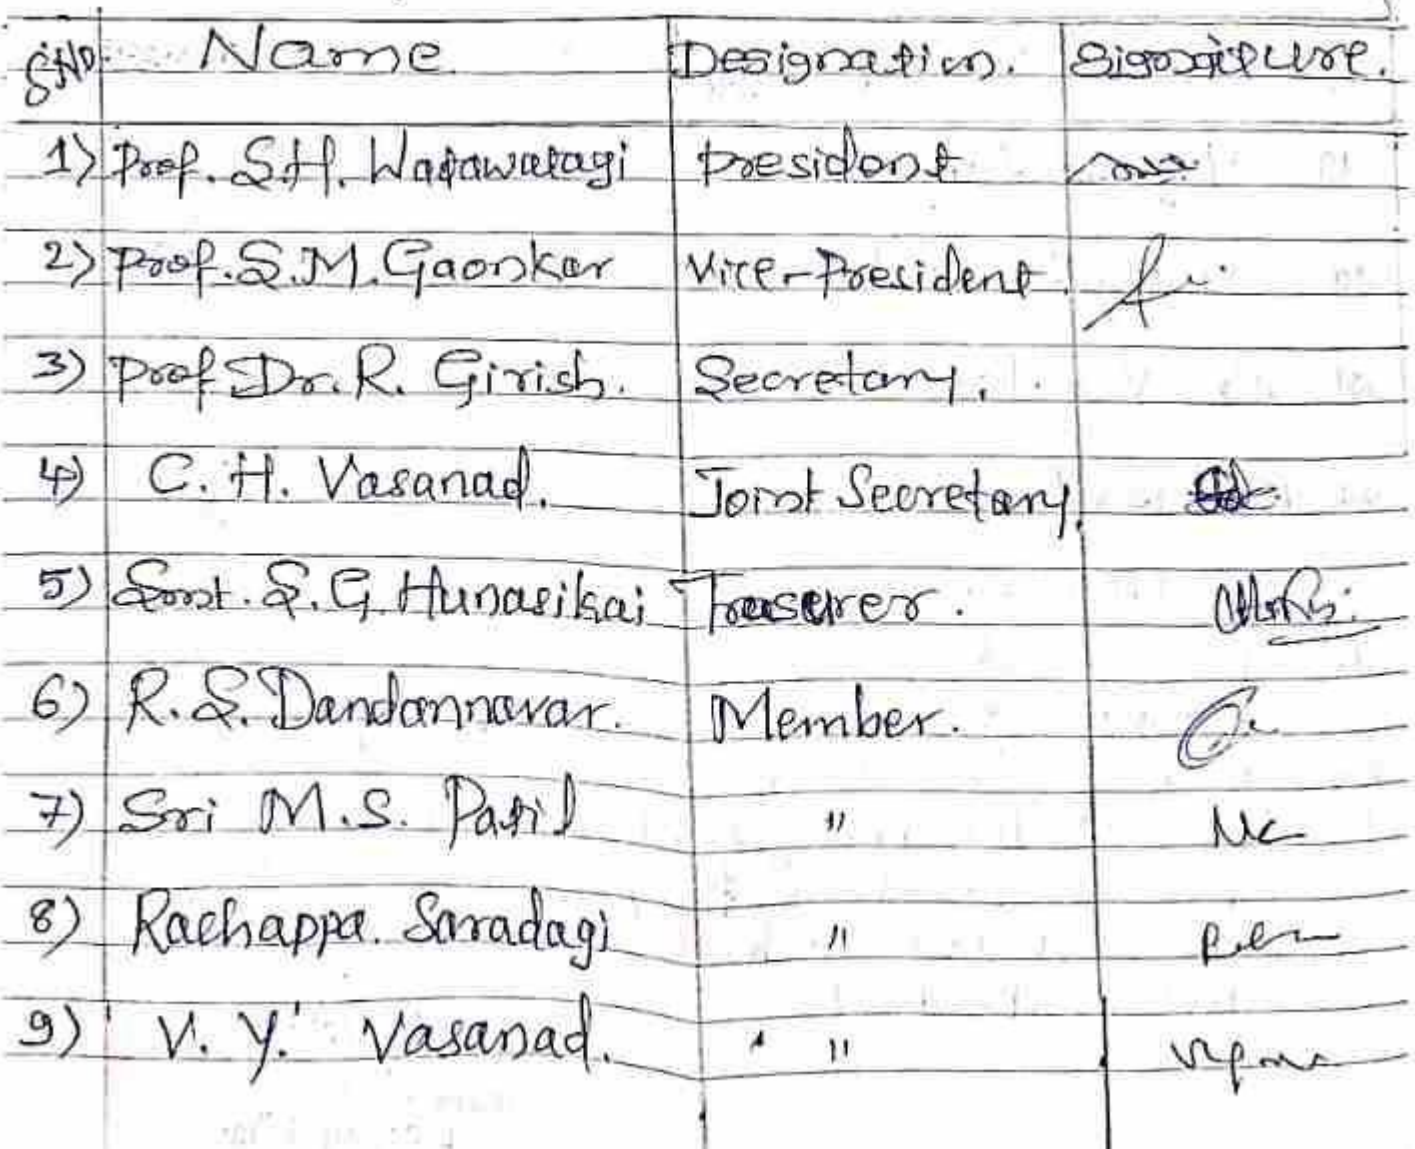 S.No. Name Designation. Signature.
1) Prof. S.H. Watawatagi President
2) Prof. S.M. Gaonkar Vice-President.
3) Prof Dr. R. Girish. Secretary.
4) C. H. Vasanad. Joint Secretary.
5) Smt. S. G. Hunasikai Treasurer.
6) R. S. Dandannavar. Member.
7) Sri M.S. Patil "
8) Rachappa. Saradagi "
9) V. Y. Vasanad. "